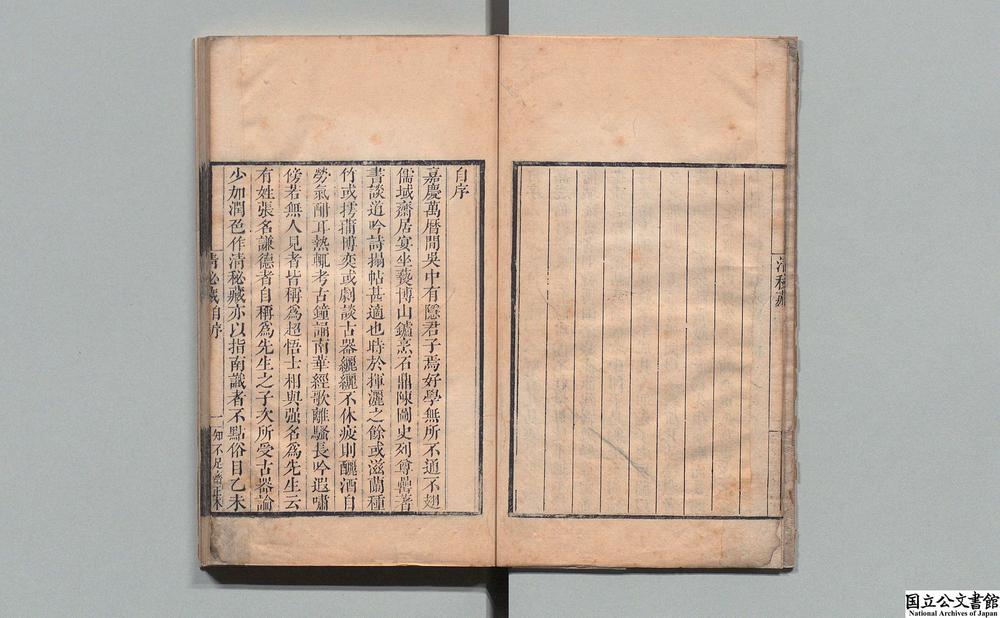 自序
嘉慶萬曆間吳中有隱君子焉好學無所不通不翅
儒域齋居宴坐爇博山鑪烹石鼎陳圖史列尊彝著
書談道吟詩搨帖甚適也時於揮灑之餘或滋蘭種
竹或摴蒱博奕或劇談古器纚纚不休疲則釃酒自
勞氣酣耳熱輒考古鐘誦南華經歌離騷長吟遐嘯
傍若無人見者皆稱為超悟士相與强名為先生云
有姓張名謙德者自稱為先生之子次所受古器論
少加潤色作清秘藏亦以指南識者不點俗目乙未
清秘藏自序
一
知不足齋正本
清秘藏
国立公文書館
National Archives of Japan